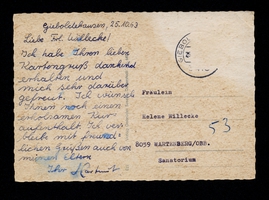 Gieboldehausen, 25.10.63
Liebe Frl. Willecke!
Ich habe Ihren lieben
Kartengruß dankend
erhalten und
mich sehr darüber
gefreut. Ich wünsche
Ihnen noch einen
erholsamen Kur-
aufenthalt. Ich ver-
bleibe mit freund-
lichen Grüßen auch von
meinen Eltern
Ihr
Fräulein
Helene Willecke
53
8059 WARTENBERG/OBB.
Sanatorium